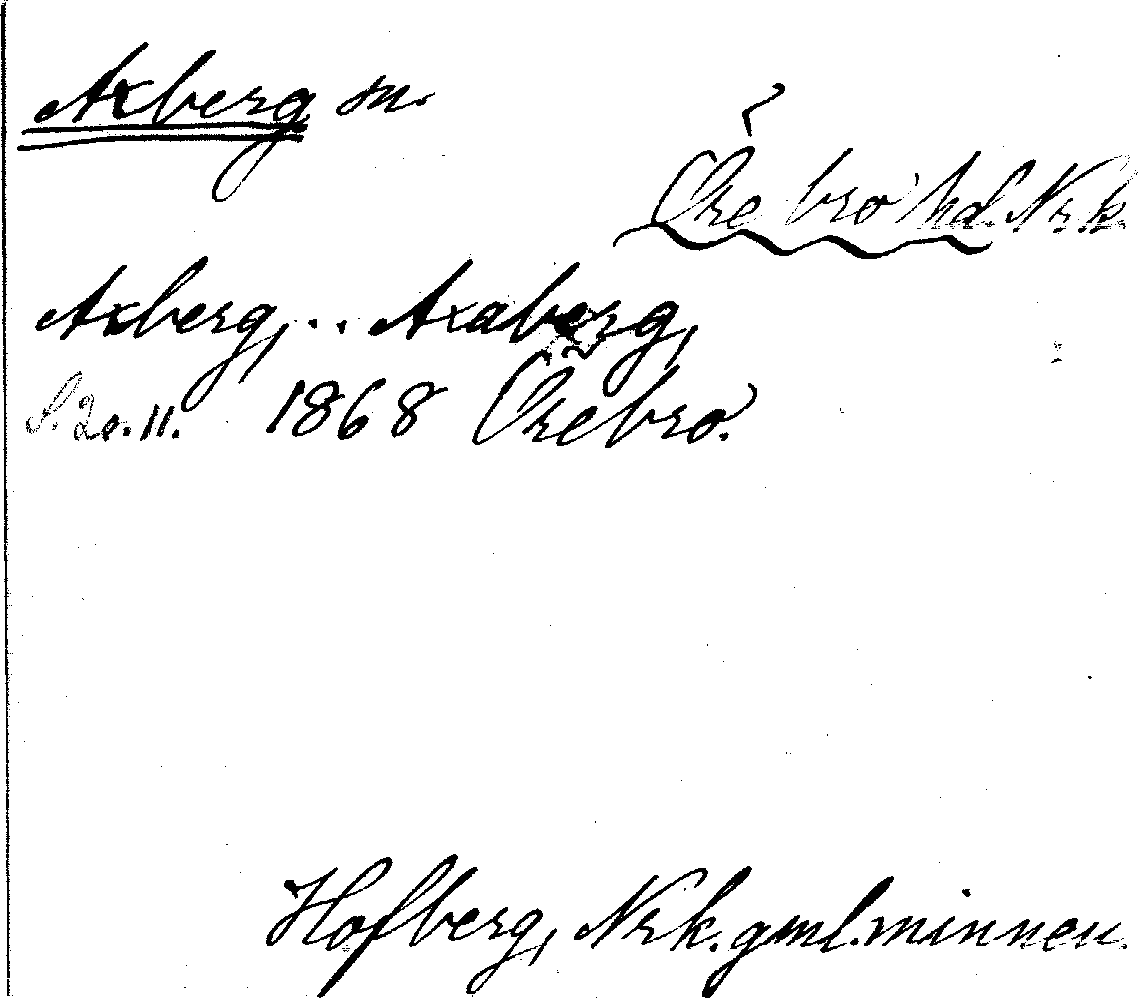 Axberg sn.
Örebro hd. Nrk.
Axberg, .. Axaberg,
S. 20. 11. 1868 Örebro.
Hofberg, Nrk. gml. minnen.